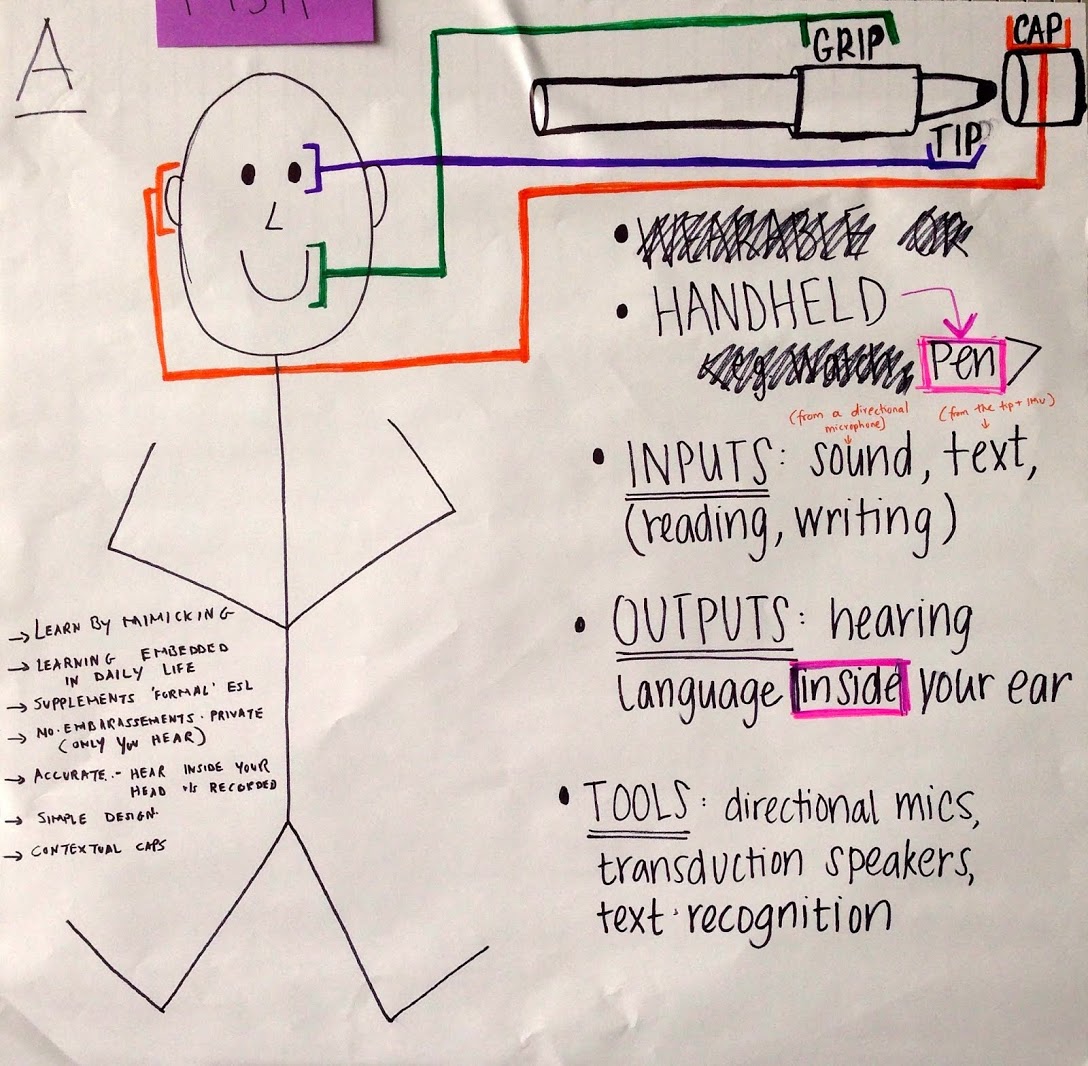 A
GRIP
CAP
TIP
• WEARABLE OR
• HANDHELD
Pen
(from a directional
microphone)
(from the tip + IMU)
• INPUTS: sound, text,
(reading, writing)
• OUTPUTS: hearing
language inside your ear
• TOOLS: directional mics,
transduction speakers,
text recognition
→ LEARN BY MIMICKING
→ LEARNING EMBEDDED
IN DAILY LIFE
→ SUPPLEMENTS 'FORMAL' ESL
→ NO EMBARASSEMENTS. PRIVATE
(ONLY YOU HEAR)
→ ACCURATE - HEAR INSIDE YOUR
HEAD vs RECORDED
→ SIMPLE DESIGN
→ CONTEXTUAL CAPS